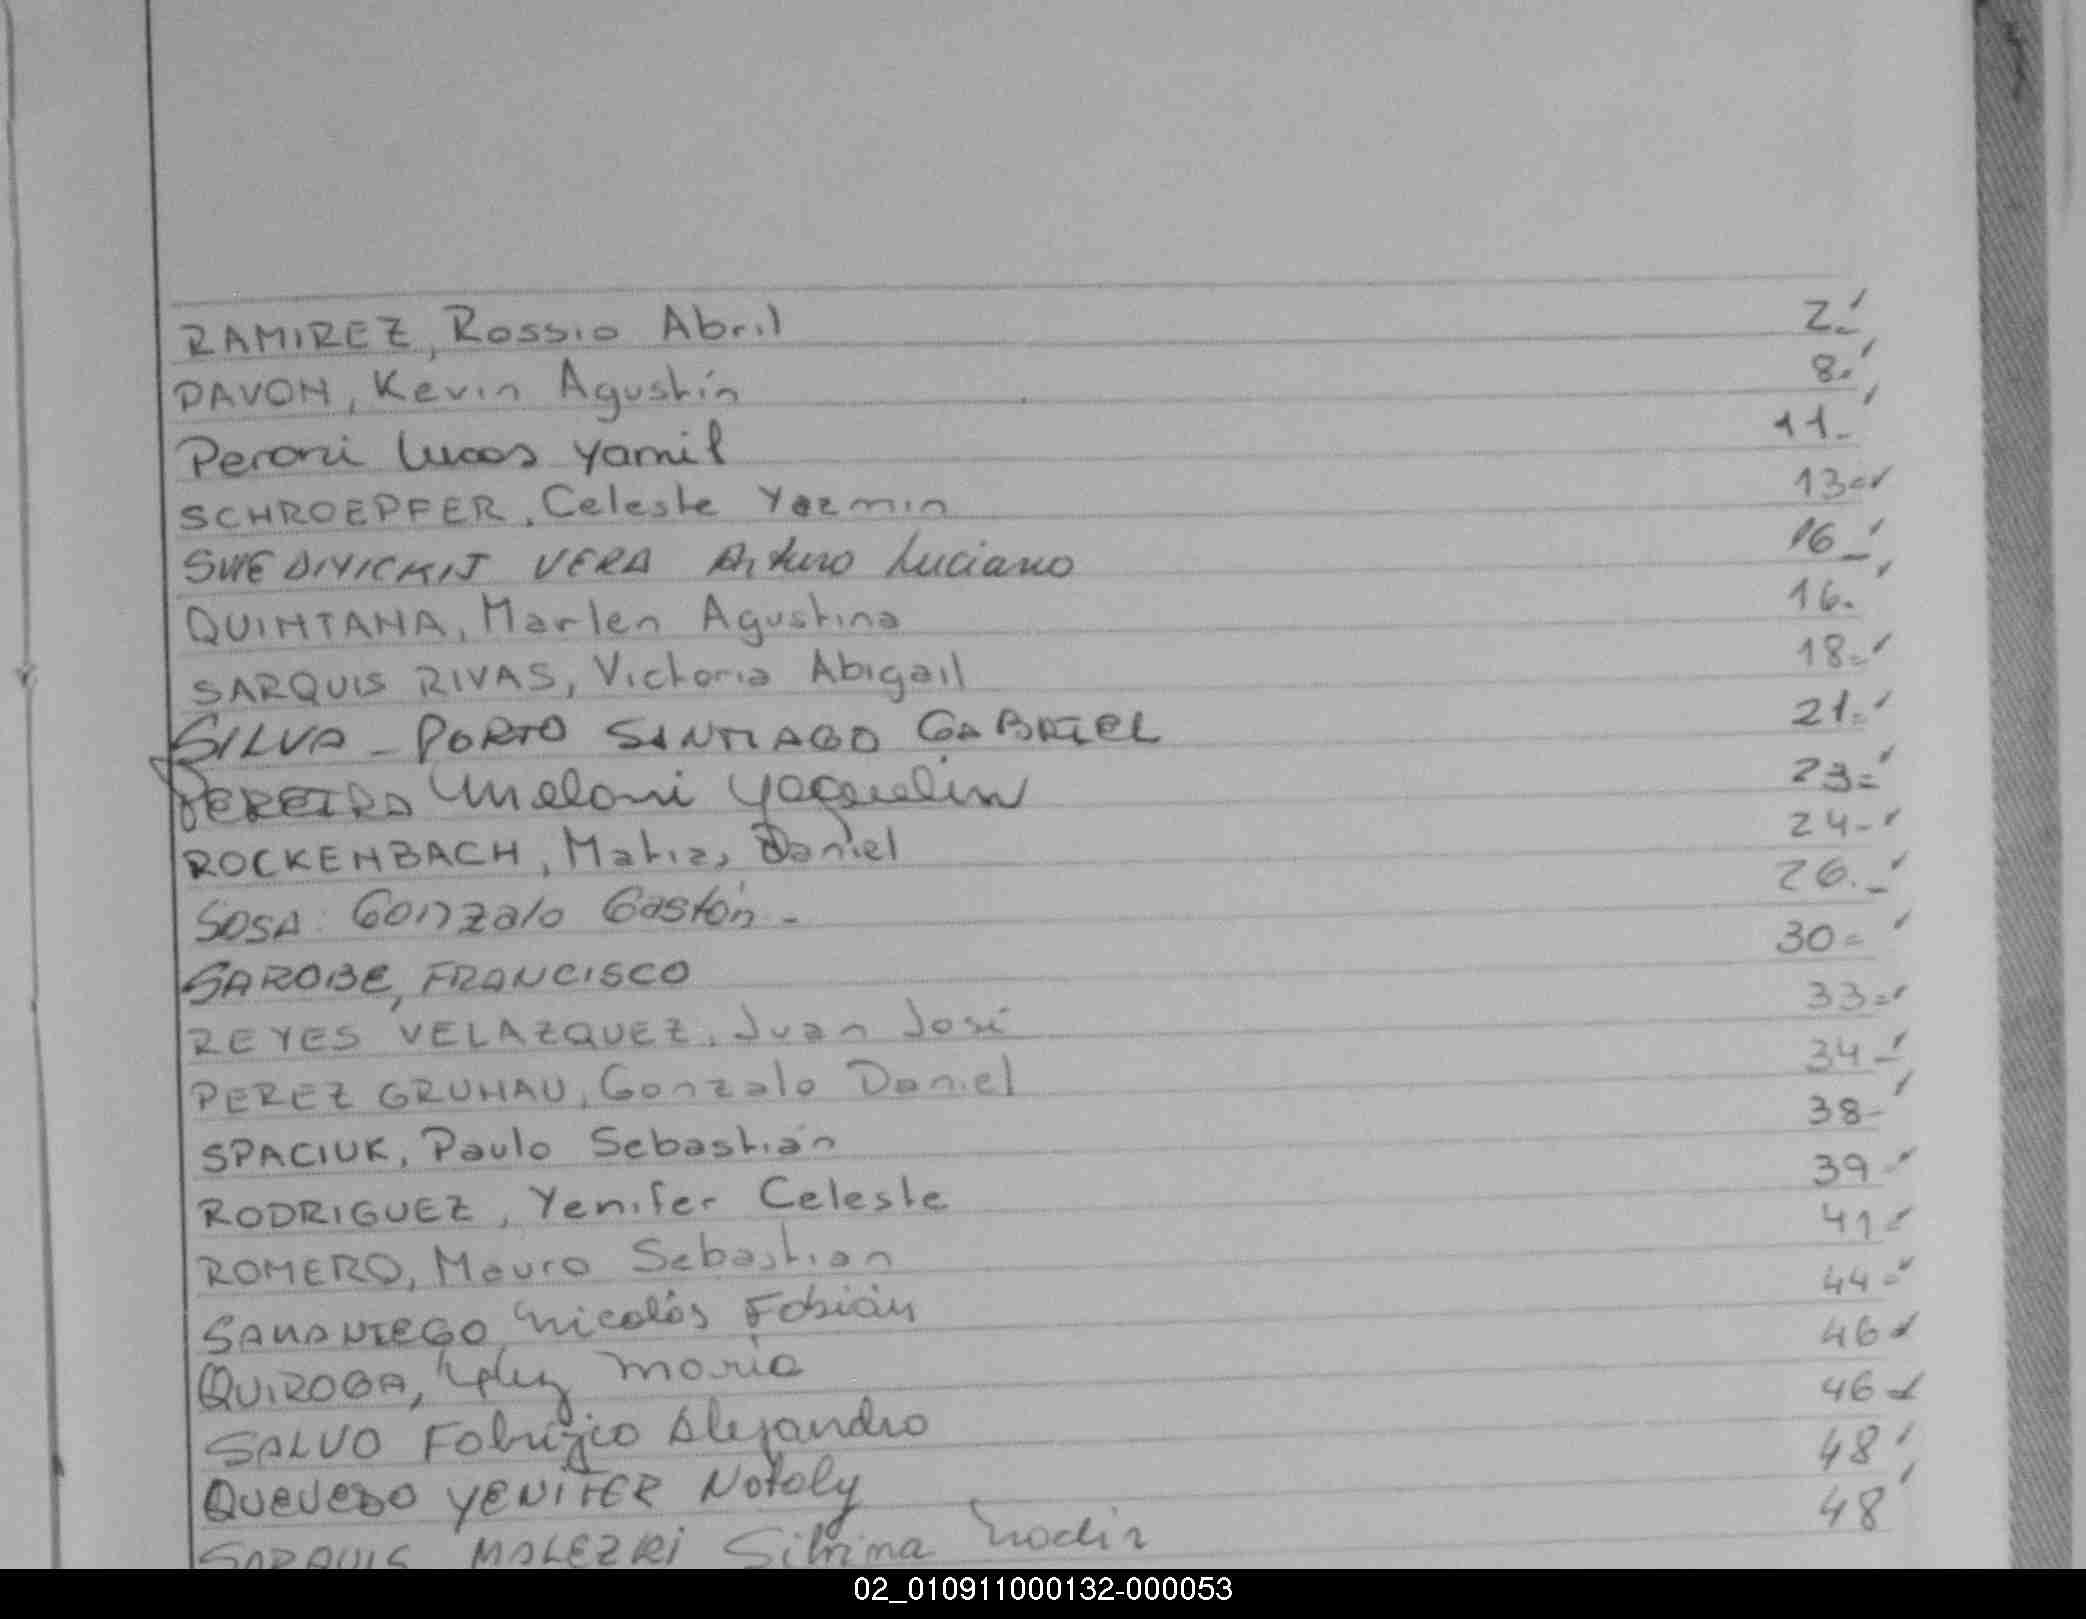 RAMIREZ, Rossio Abril 2.-
PAVON, Kevin Agustín 8.-
Peroni Lucas Yamil 11.-
SCHROEPFER, Celeste Yazmin 13=
VERA Arturo Luciano 16_
QUINTANA, Marlen Agustina 16.
SARQUIS RIVAS, Victoria Abigail 18=
SILVA - PORTO SANTIAGO GABRIEL 21=
PEREIRA Melani Yaquelin 23=
ROCKENBACH, Matias Daniel 24-
SOSA: Gonzalo Gastón - 26._
SAROBE, FRANCISCO 30=
REYES VELAZQUEZ, Juan José 33=
PEREZ GRUNAU, Gonzalo Daniel 34-
SPACIUK, Paulo Sebastián 38-
RODRIGUEZ, Yenifer Celeste 39-
ROMERO, Mauro Sebastian 41-
SAMANIEGO Nicolás Fabián 44=
QUIROGA, María 46
SALVO Fabrizio Alejandro 46
QUEVEDO YENIFER Nataly 48
SARQUIS Silvina 48
02_010911000132-000053